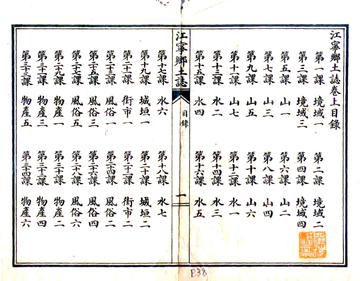 江寧鄉土誌卷上目錄
第一課 境域一 第二課 境域二
第三課 境域三 第四課 境域四
第五課 山一 第六課 山二
第七課 山三 第八課 山四
第九課 山五 第十課 山六
第十一課 山七 第十二課 水一
第十三課 水二 第十四課 水三
第十五課 水四 第十六課 水五
江寧鄉土誌 目錄 一
第十七課 水六 第十八課 水七
第十九課 城垣一 第二十課 城垣二
第二十一課 街市一 第二十二課 街市二
第二十三課 風俗一 第二十四課 風俗二
第二十五課 風俗三 第二十六課 風俗四
第二十七課 風俗五 第二十八課 風俗六
第二十九課 物產一 第三十課 物產二
第三十一課 物產三 第三十二課 物產四
第三十三課 物產五 第三十四課 物產六
P.38